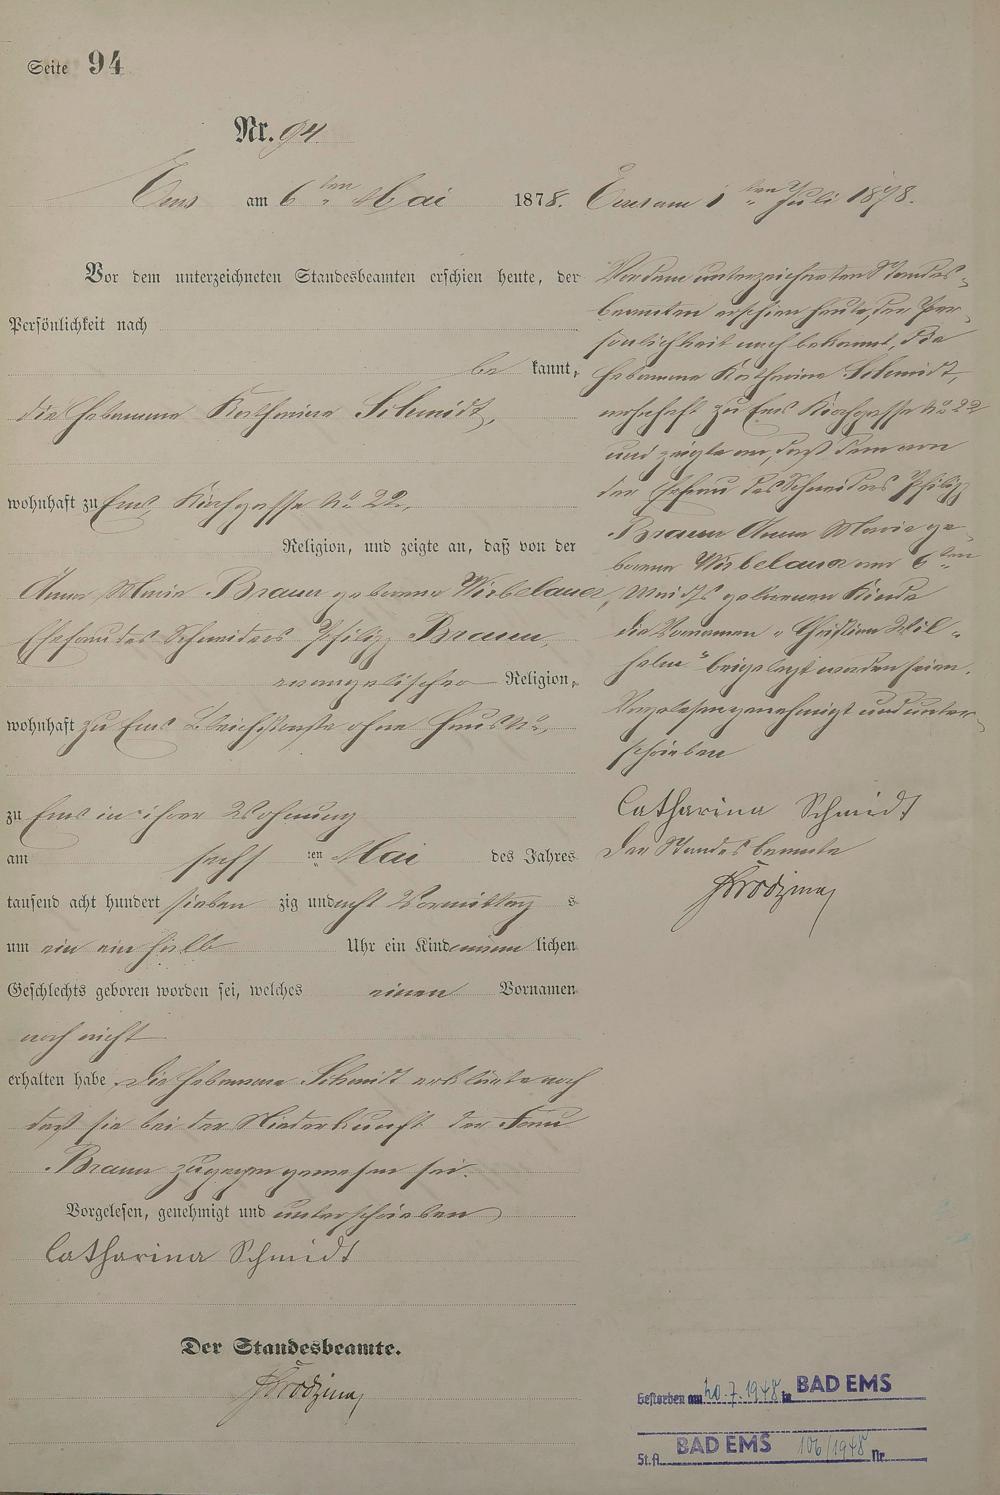 Seite 94
Nr. 94.
Ems am 6ten Mai 1878.
Vor dem unterzeichneten Standesbeamten erschien heute, der
Persönlichkeit nach
be kannt,
die Hebamme Katharine Schmidt,
wohnhaft zu Ems, Kirchgasse No 22,
Religion, und zeigte an, daß von der
Anna Maria Braun geborene Wirbelauer,
Ehefrau des Schneiders Philipp Braun,
evangelischer Religion,
wohnhaft zu Ems Bleichstraße ohne Haus No,
zu Ems in ihrer Wohnung
am sechsten Mai des Jahres
tausend acht hundert sieben zig und acht Vormittags
um ein ein halb Uhr ein Kind männlichen
Geschlechts geboren worden sei, welches einen Vornamen
noch nicht
erhalten habe. Die Hebamme Schmidt erklärte noch
daß sie bei der Niederkunft der Frau
Braun zugegen gewesen sei.
Vorgelesen, genehmigt und unterschrieben
Catharina Schmidt
Der Standesbeamte.
Ems am 1ten Juli 1878.
Vor dem unterzeichneten Standes-
beamten erschien heute, der Per-
sönlichkeit nach bekannt, die
Hebamme Katharine Schmidt,
wohnhaft zu Ems Kirchgasse No 22
und zeigte an, daß dem von
der Ehefrau des Schneiders Philipp
Braun Anna Maria ge-
borene Wirbelauer am 6ten
Mai geborenen Kinde
die Vornamen "Christian Wil-
helm" beigelegt worden seien.
Vorgelesen genehmigt und unter-
schrieben
Catharina Schmidt
Der Standesbeamte
Gestorben am 20.7.1948 in BAD EMS
St.A. BAD EMS 106/1948 Nr